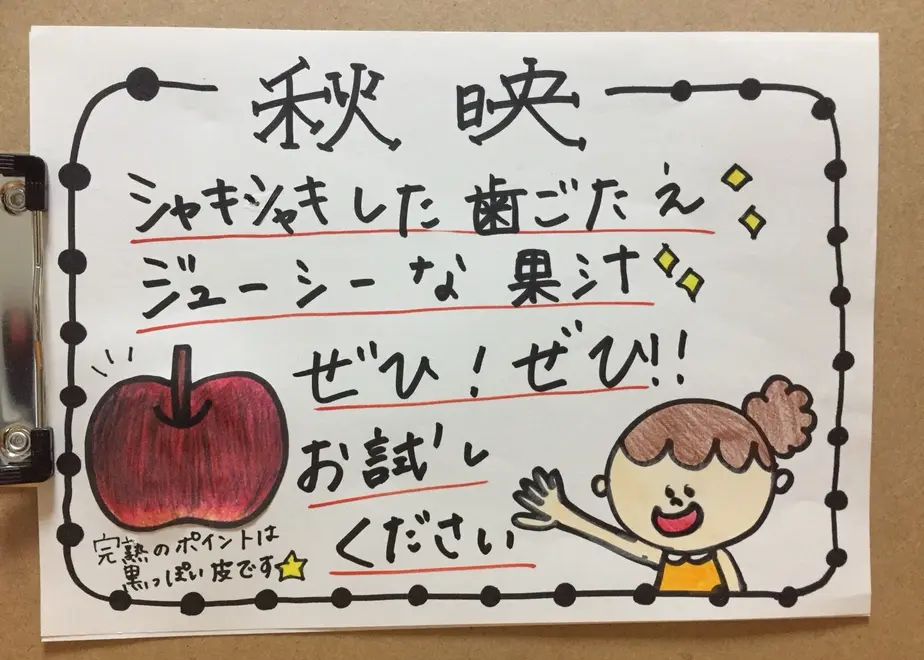 秋映
シャキシャキした歯ごたえ
ジューシーな果汁
ぜひ！ぜひ!!
お試し
ください
完熟のポイントは
黒っぽい皮です